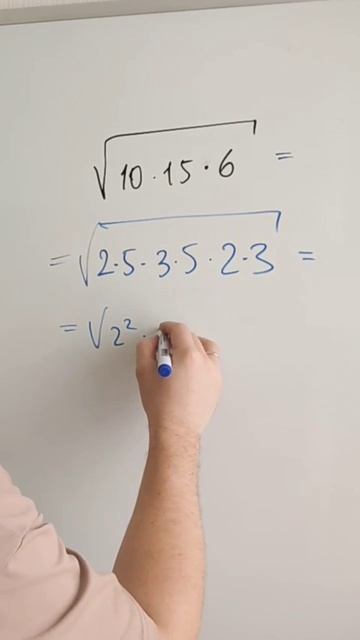 √10·15·6 =
= √2·5·3·5·2·3 =
= √2²·